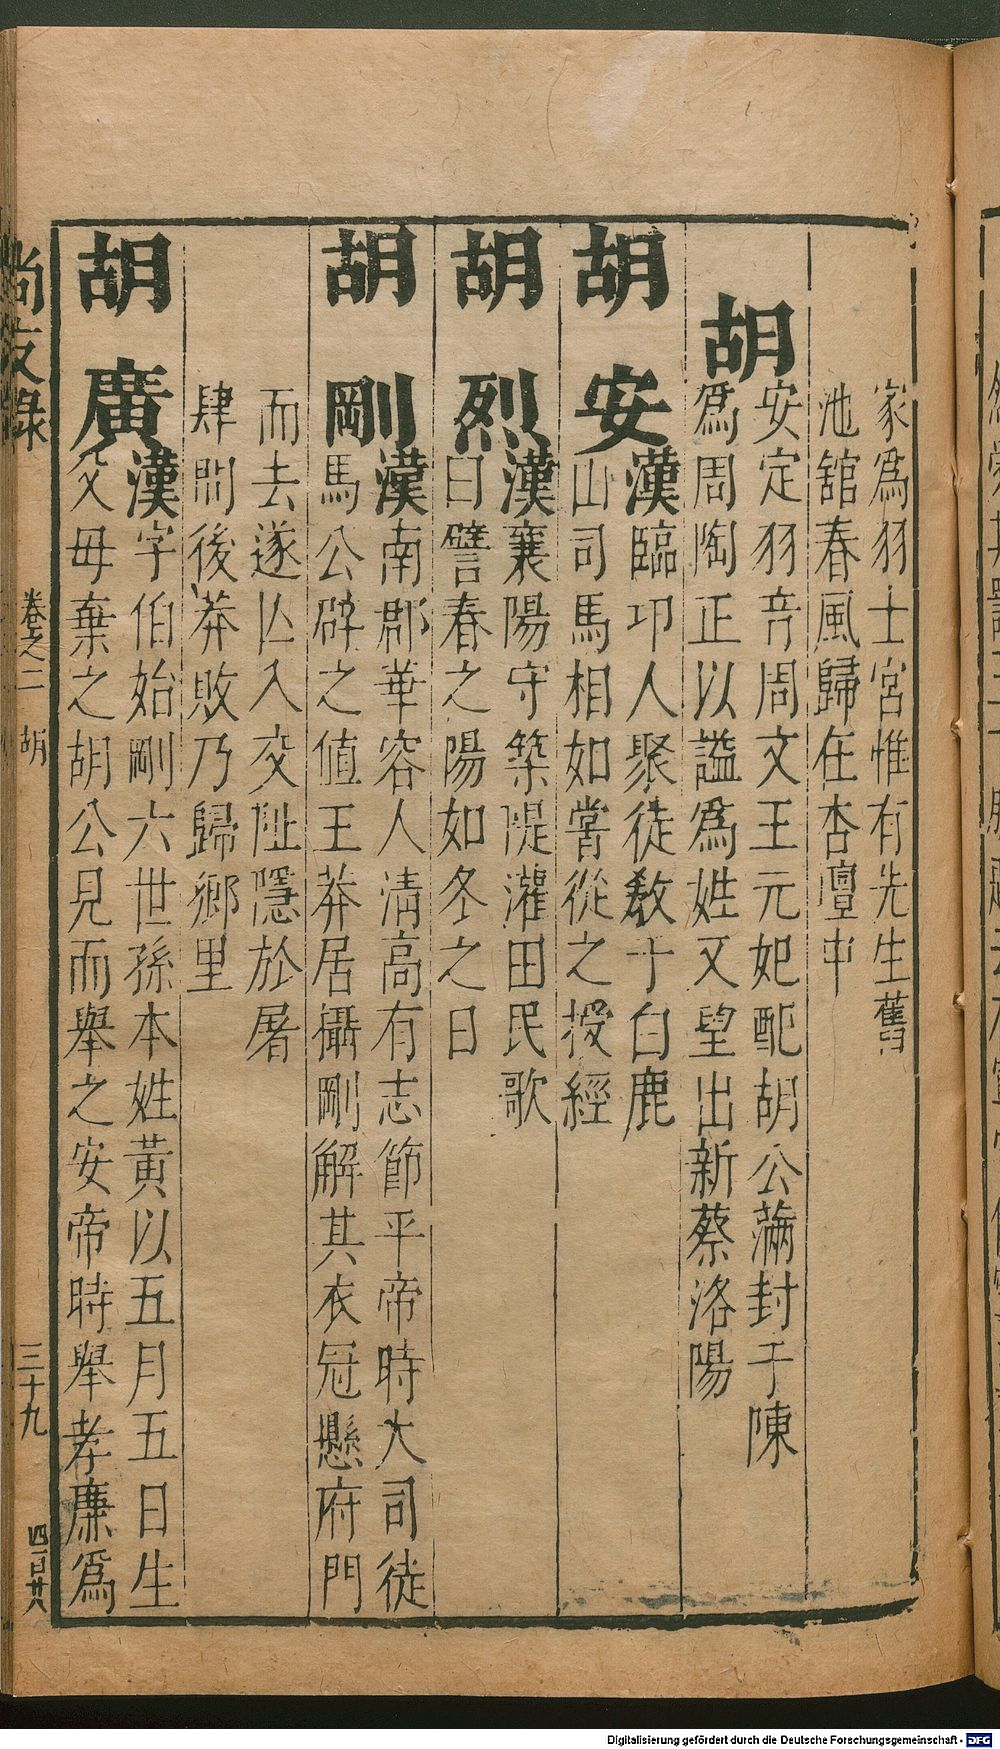 家爲羽士宮惟有先生舊
池舘春風歸在杏壇中
胡
安定羽音周文王元妃配胡公滿封于陳
爲周陶正以謚爲姓又望出新蔡洛陽
胡安
漢臨邛人聚徒敎于白鹿
山司馬相如嘗從之授經
胡烈
漢襄陽守築隄灌田民歌
曰譬春之陽如冬之日
胡剛
漢南郡華容人清高有志節平帝時大司徒
馬公辟之値王莽居攝剛解其衣冠懸府門
而去遂亾入交阯隱於屠
肆間後莽敗乃歸鄉里
胡廣
漢字伯始剛六世孫本姓黃以五月五日生
父母棄之胡公見而舉之安帝時舉孝廉爲
尚友錄
卷之二 胡
三十九
四百廿八
Digitalisierung gefördert durch die Deutsche Forschungsgemeinschaft - DFG